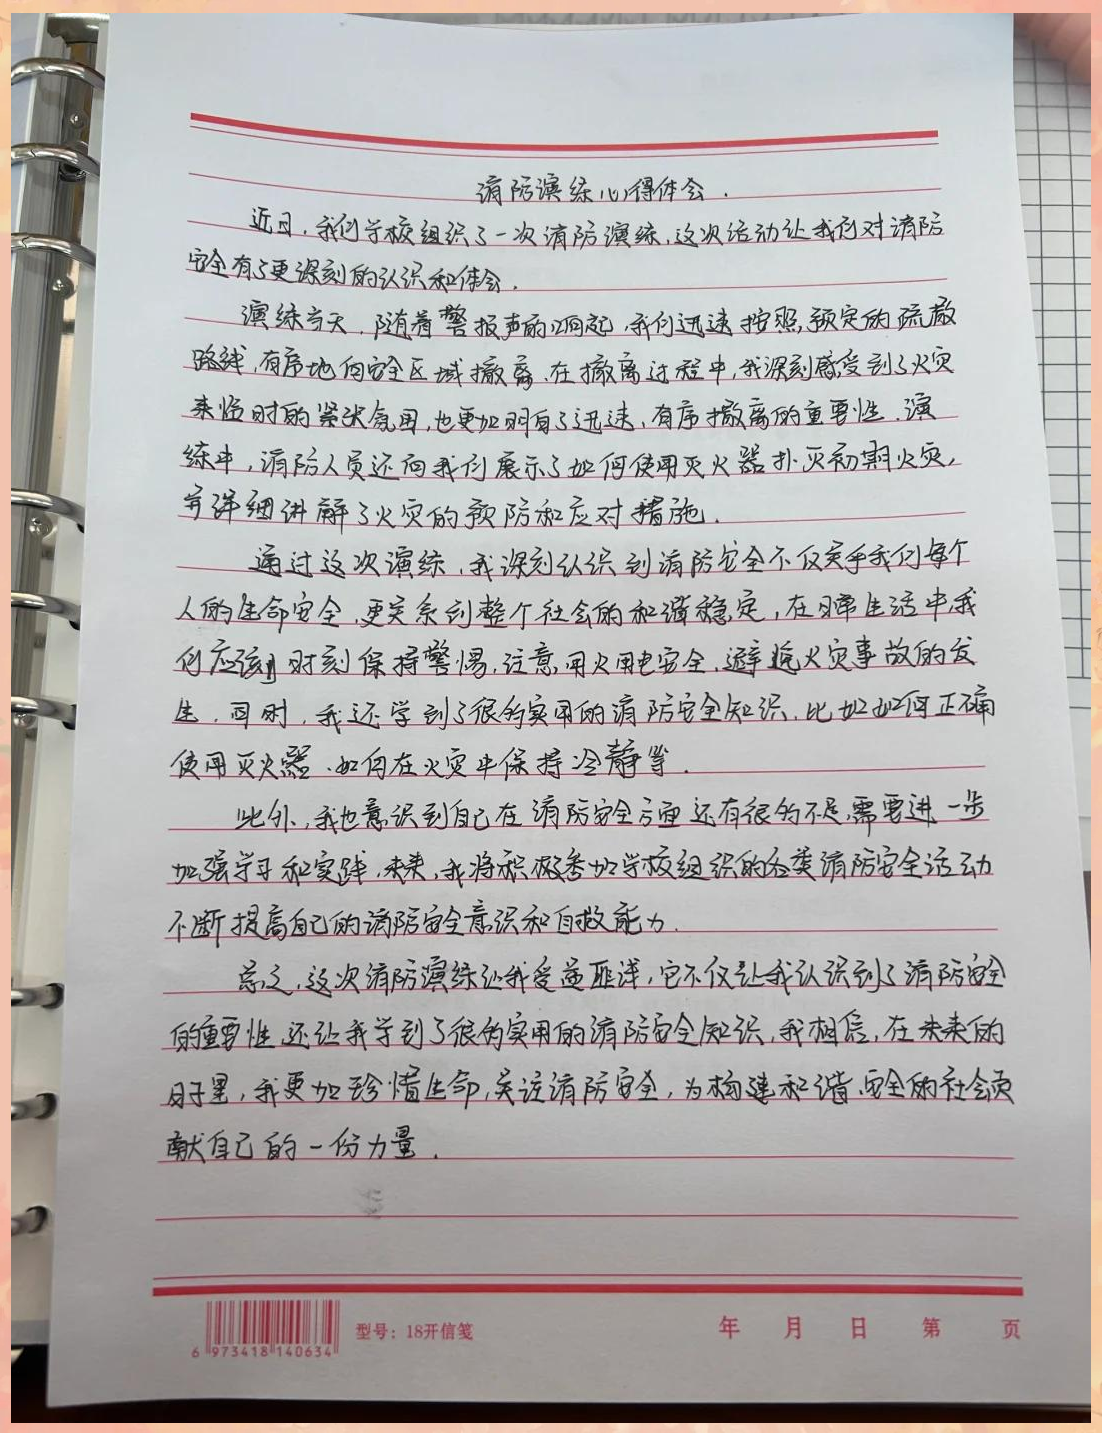 消防演练心得体会.
近日,我们学校组织了一次消防演练,这次活动让我们对消防
安全有了更深刻的认识和体会.
演练当天,随着警报声的响起,我们迅速按照预定的疏散
路线,有序地向安全区域撤离.在撤离过程中,我深刻感受到了火灾
来临时的紧张氛围,也更加明白了迅速,有序撤离的重要性.演
练中,消防人员还向我们展示了如何使用灭火器扑灭初期火灾,
并详细讲解了火灾的预防和应对措施.
通过这次演练,我深刻认识到消防安全不仅关乎我们每个
人的生命安全,更关系到整个社会的和谐稳定,在日常生活中,我
们应该时刻保持警惕,注意用火用电安全,避免火灾事故的发
生.同时,我还学到了很多实用的消防安全知识,比如如何正确
使用灭火器.如何在火灾中保持冷静等.
此外,我也意识到自己在消防安全方面还有很多不足,需要进一步
加强学习和实践.未来,我将积极参加学校组织的各类消防安全活动
不断提高自己的消防安全意识和自救能力.
总之,这次消防演练让我受益匪浅,它不仅让我认识到了消防安全
的重要性,还让我学到了很多实用的消防安全知识,我相信,在未来的
日子里,我更加珍惜生命,关注消防安全,为构建和谐、安全的社会贡
献自己的一份力量.
6 973418 140634
型号：18开信笺
年 月 日 第 页